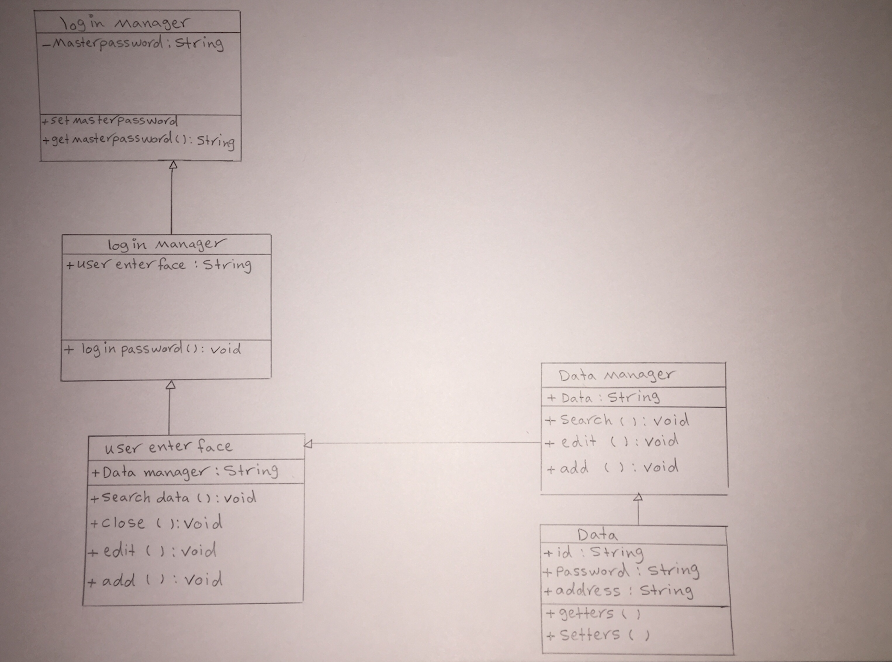 login Manager
-Masterpassword : String
+set masterpassword
+getmasterpassword() : String
login Manager
+user enter face : String
+ login password() : void
user enter face
+Data manager : String
+Search data () : void
+close () : void
+edit () : void
+add () : void
Data manager
+ Data : String
+ Search () : void
+ edit () : void
+ add () : void
Data
+id : String
+Password : String
+address : String
+getters ()
+Setters ()